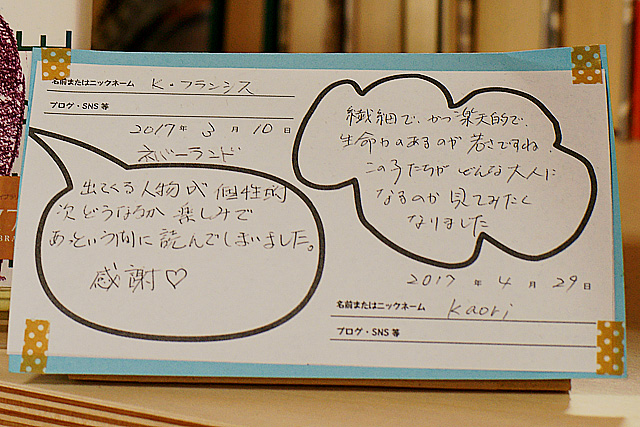 名前またはニックネーム K・フランシス
ブログ・SNS 等
2017 年 3 月 10 日
ネバーランド
出てくる人物が 個性的
次どうなるか 楽しみで
あっという間に 読んでしまいました。
感謝♡
繊細で、かつ楽天的で、
生命力のあるのが 若さですね!
この子たちが どんな大人に
なるのか 見てみたく
なりました
2017 年 4 月 29 日
名前またはニックネーム kaori
ブログ・SNS 等